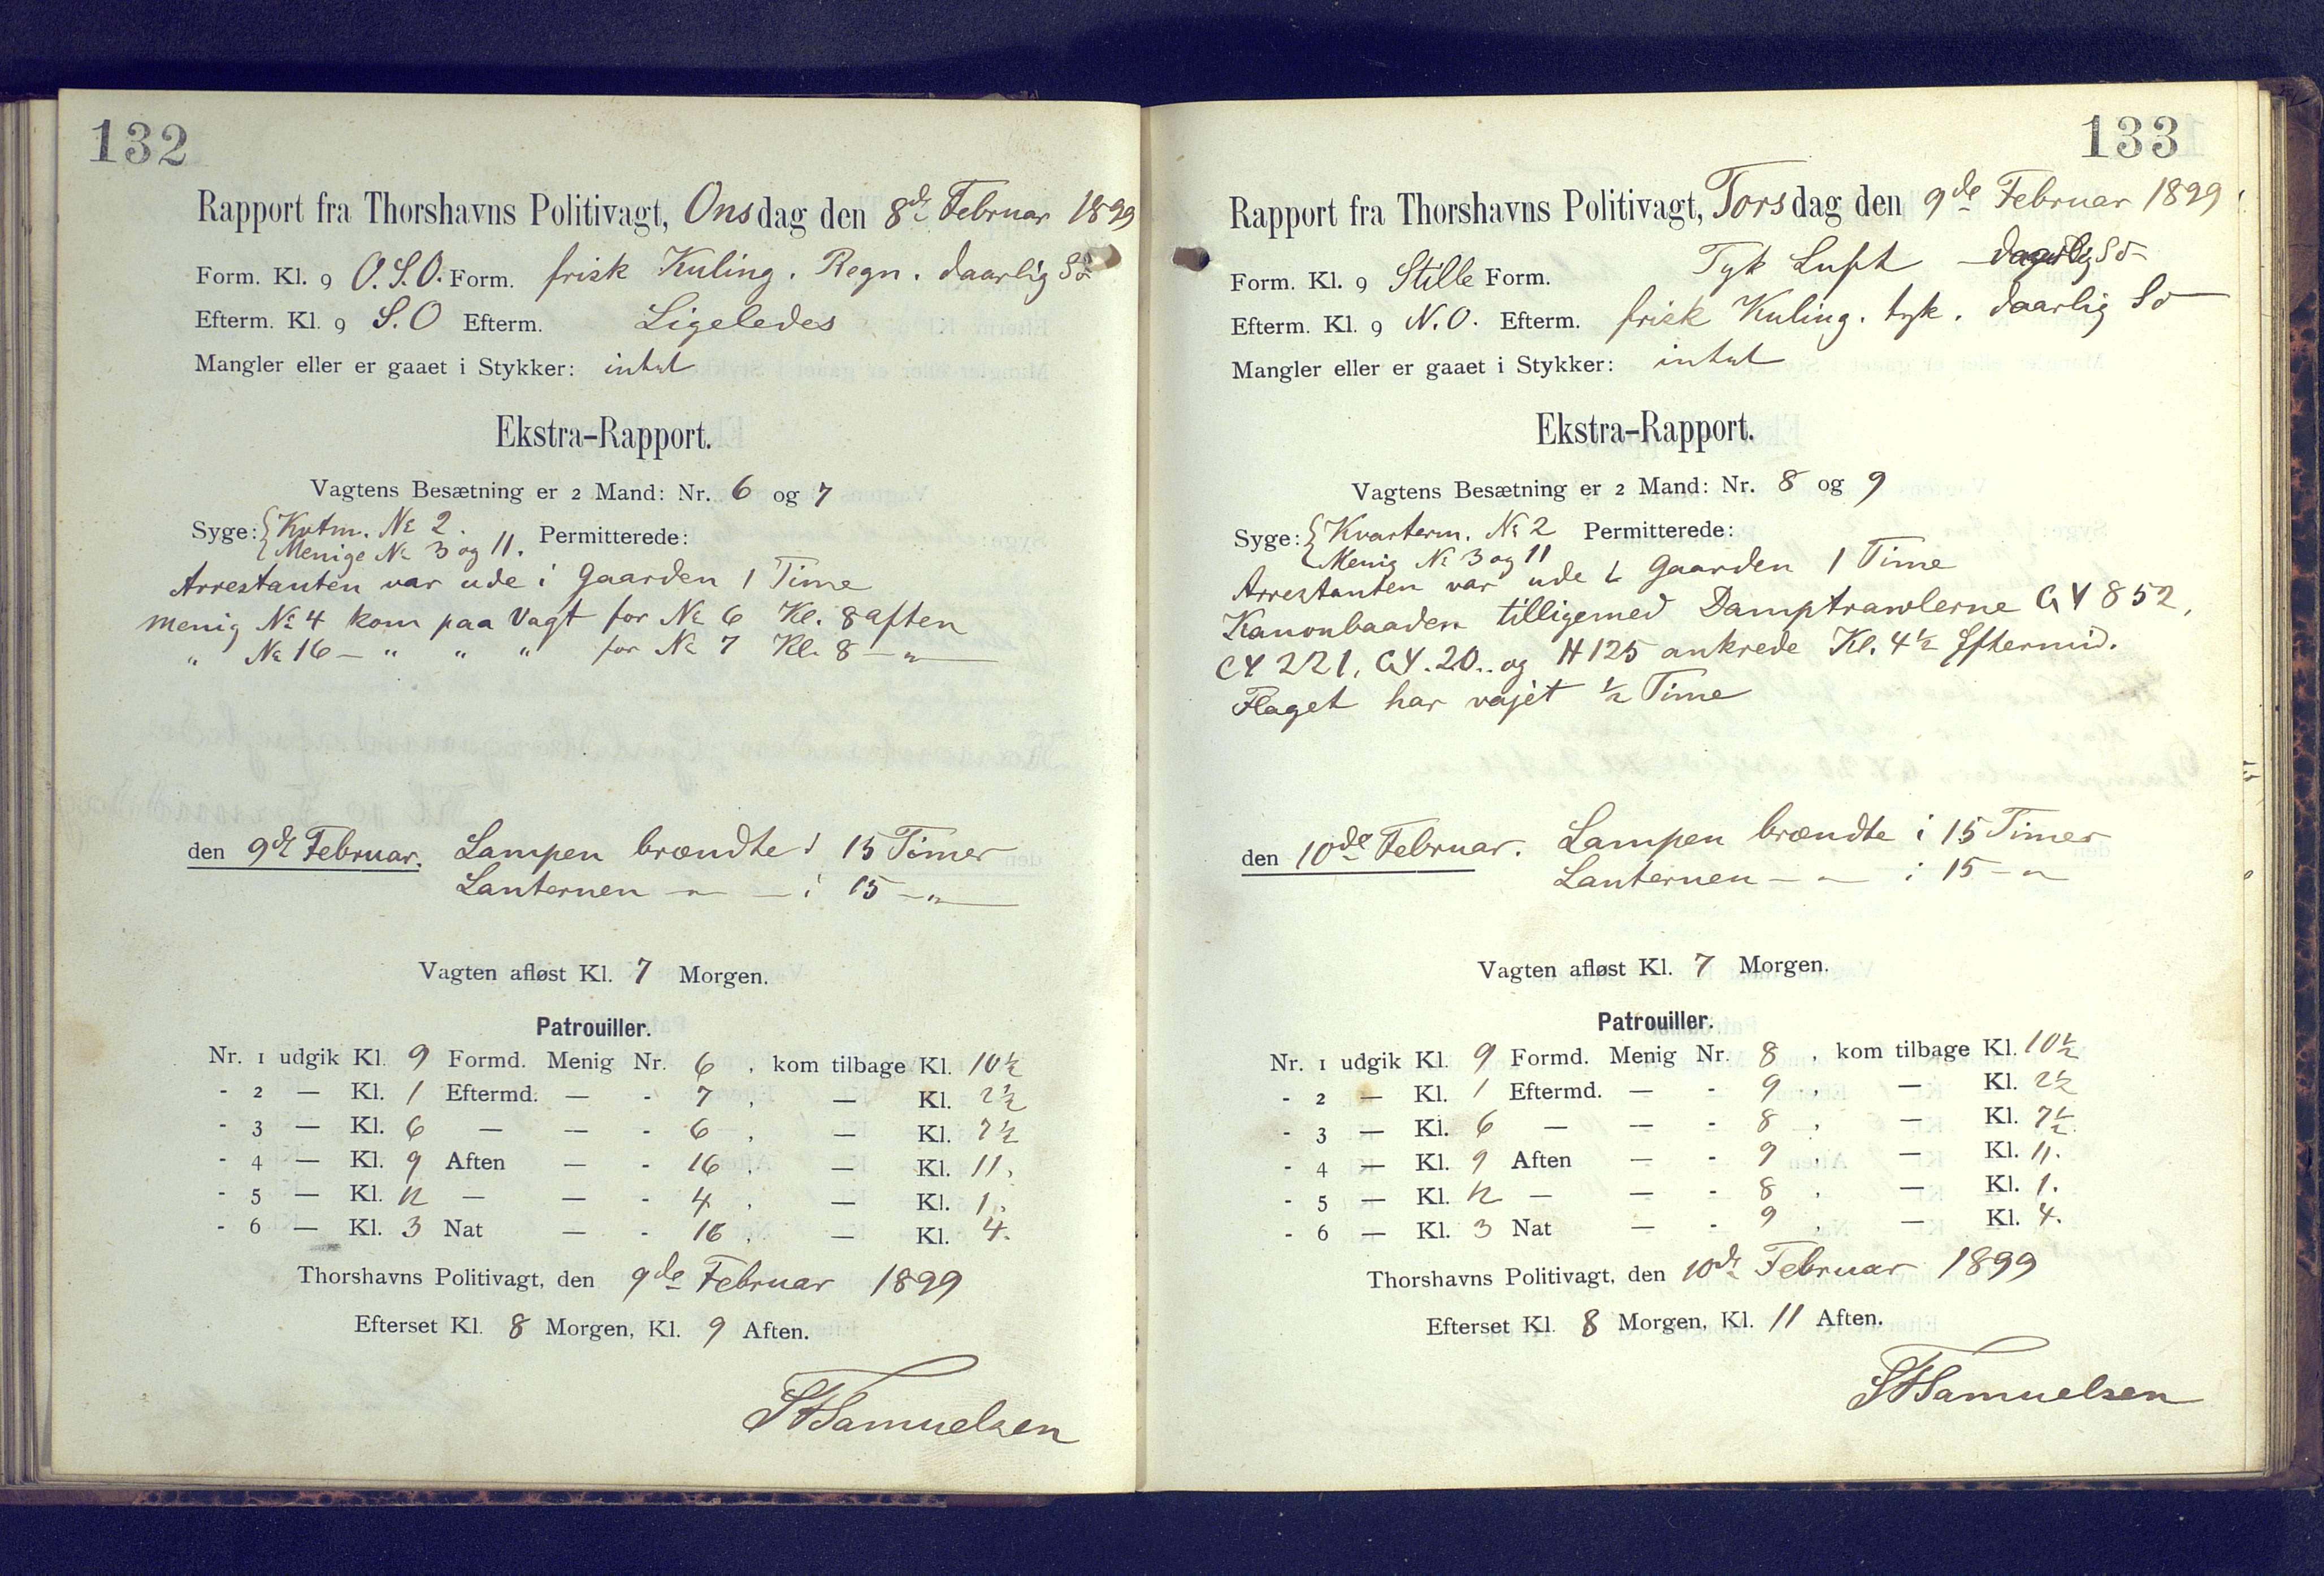 132
Rapport fra Thorshavns Politivagt, Onsdag den 8de Februar 1899
Form. Kl. 9 O.S.O. Form. frisk Kuling. Regn. daarlig Sö
Efterm. Kl. 9 S.O Efterm. Ligeledes
Mangler eller er gaaet i Stykker: intet
Ekstra-Rapport.
Vagtens Besætning er 2 Mand: Nr. 6 og 7
Syge: { Kvtm. № 2. Permitterede:
Menige № 3 og 11.
Arrestanten var ude i Gaarden 1 Time
Menig № 4 kom paa Vagt for № 6 Kl. 8 aften
" № 16 — " " " for № 7 Kl. 8 — " —
den 9de Februar. Lampen brændte i 15 Timer
Lanternen — " — i 15 — " —
Vagten afløst Kl. 7 Morgen.
Patrouiller.
Nr. 1 udgik Kl. 9 Formd. Menig Nr. 6 , kom tilbage Kl. 10½
- 2 — Kl. 1 Eftermd. — - 7 , — Kl. 2½
- 3 — Kl. 6 — — - 6 , — Kl. 7½
- 4 — Kl. 9 Aften — - 16 , — Kl. 11.
- 5 — Kl. 12 — — - 4 , — Kl. 1.
- 6 — Kl. 3 Nat — - 16 , — Kl. 4.
Thorshavns Politivagt, den 9de Februar 1899
Efterset Kl. 8 Morgen, Kl. 9 Aften.
Samuelsen
133
Rapport fra Thorshavns Politivagt, Torsdag den 9de Februar 1899
Form. Kl. 9 Stille Form. Tyk Luft daarlig Sö
Efterm. Kl. 9 N.O. Efterm. frisk Kuling. tyk. daarlig Sö
Mangler eller er gaaet i Stykker: intet
Ekstra-Rapport.
Vagtens Besætning er 2 Mand: Nr. 8 og 9
Syge: { Kvarterm. № 2 Permitterede:
Menig № 3 og 11
Arrestanten var ude i Gaarden 1 Time
Kanonbaaden tilligemed Damptrawlerne GY 852,
GY 221, GY. 20.. og H 125 ankrede Kl. 4½ Eftermid.
Flaget har vajet ½ Time
den 10de Februar. Lampen brændte i 15 Timer
Lanternen — " — i 15 — "
Vagten afløst Kl. 7 Morgen.
Patrouiller.
Nr. 1 udgik Kl. 9 Formd. Menig Nr. 8 , kom tilbage Kl. 10½
- 2 — Kl. 1 Eftermd. — - 9 , — Kl. 2½
- 3 — Kl. 6 — — - 8 , — Kl. 7½
- 4 — Kl. 9 Aften — - 9 , — Kl. 11.
- 5 — Kl. 12 — — - 8 , — Kl. 1.
- 6 — Kl. 3 Nat — - 9 , — Kl. 4.
Thorshavns Politivagt, den 10de Februar 1899
Efterset Kl. 8 Morgen, Kl. 11 Aften.
Samuelsen